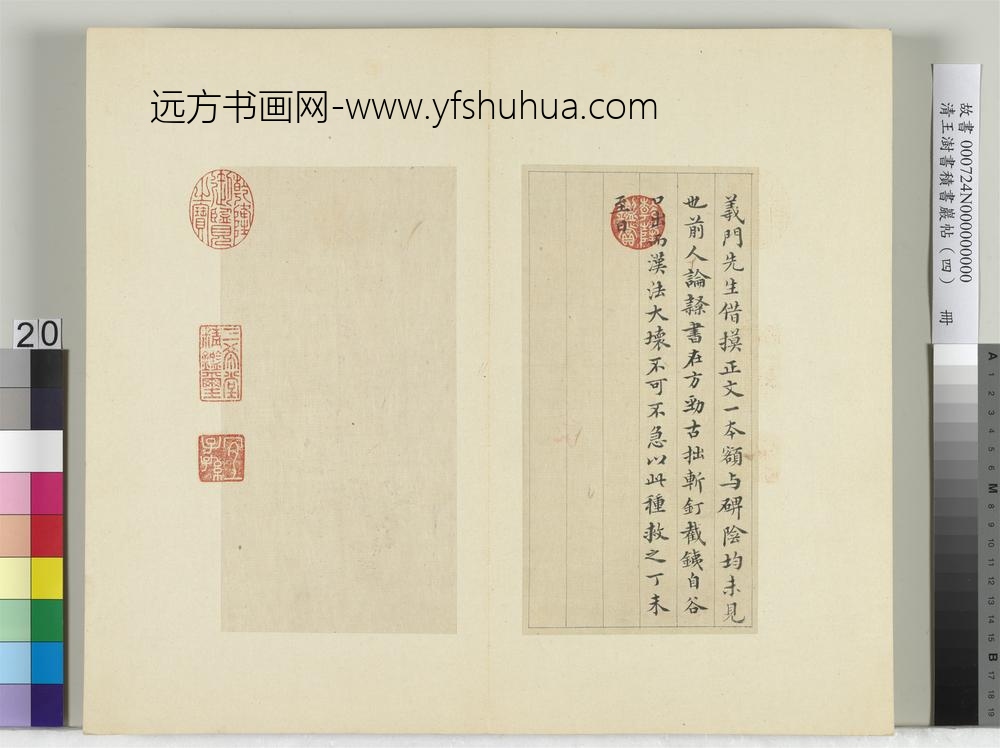 远方书画网-www.yfshuhua.com
故書 000724N000000000
清王澍書積書巖帖(四) 冊
義門先生借摸正文一本額与碑陰均未見
也前人論隸書在方勁古拙斬釘截鐵自谷
口出而漢法大壞不可不急以此種救之丁未
至日
乾隆御覽之寶
三希堂精鑑璽
宜子孫
20
A 1 2 3 4 5 6 M 8 9 10 11 12 13 14 15 B 17 18 19